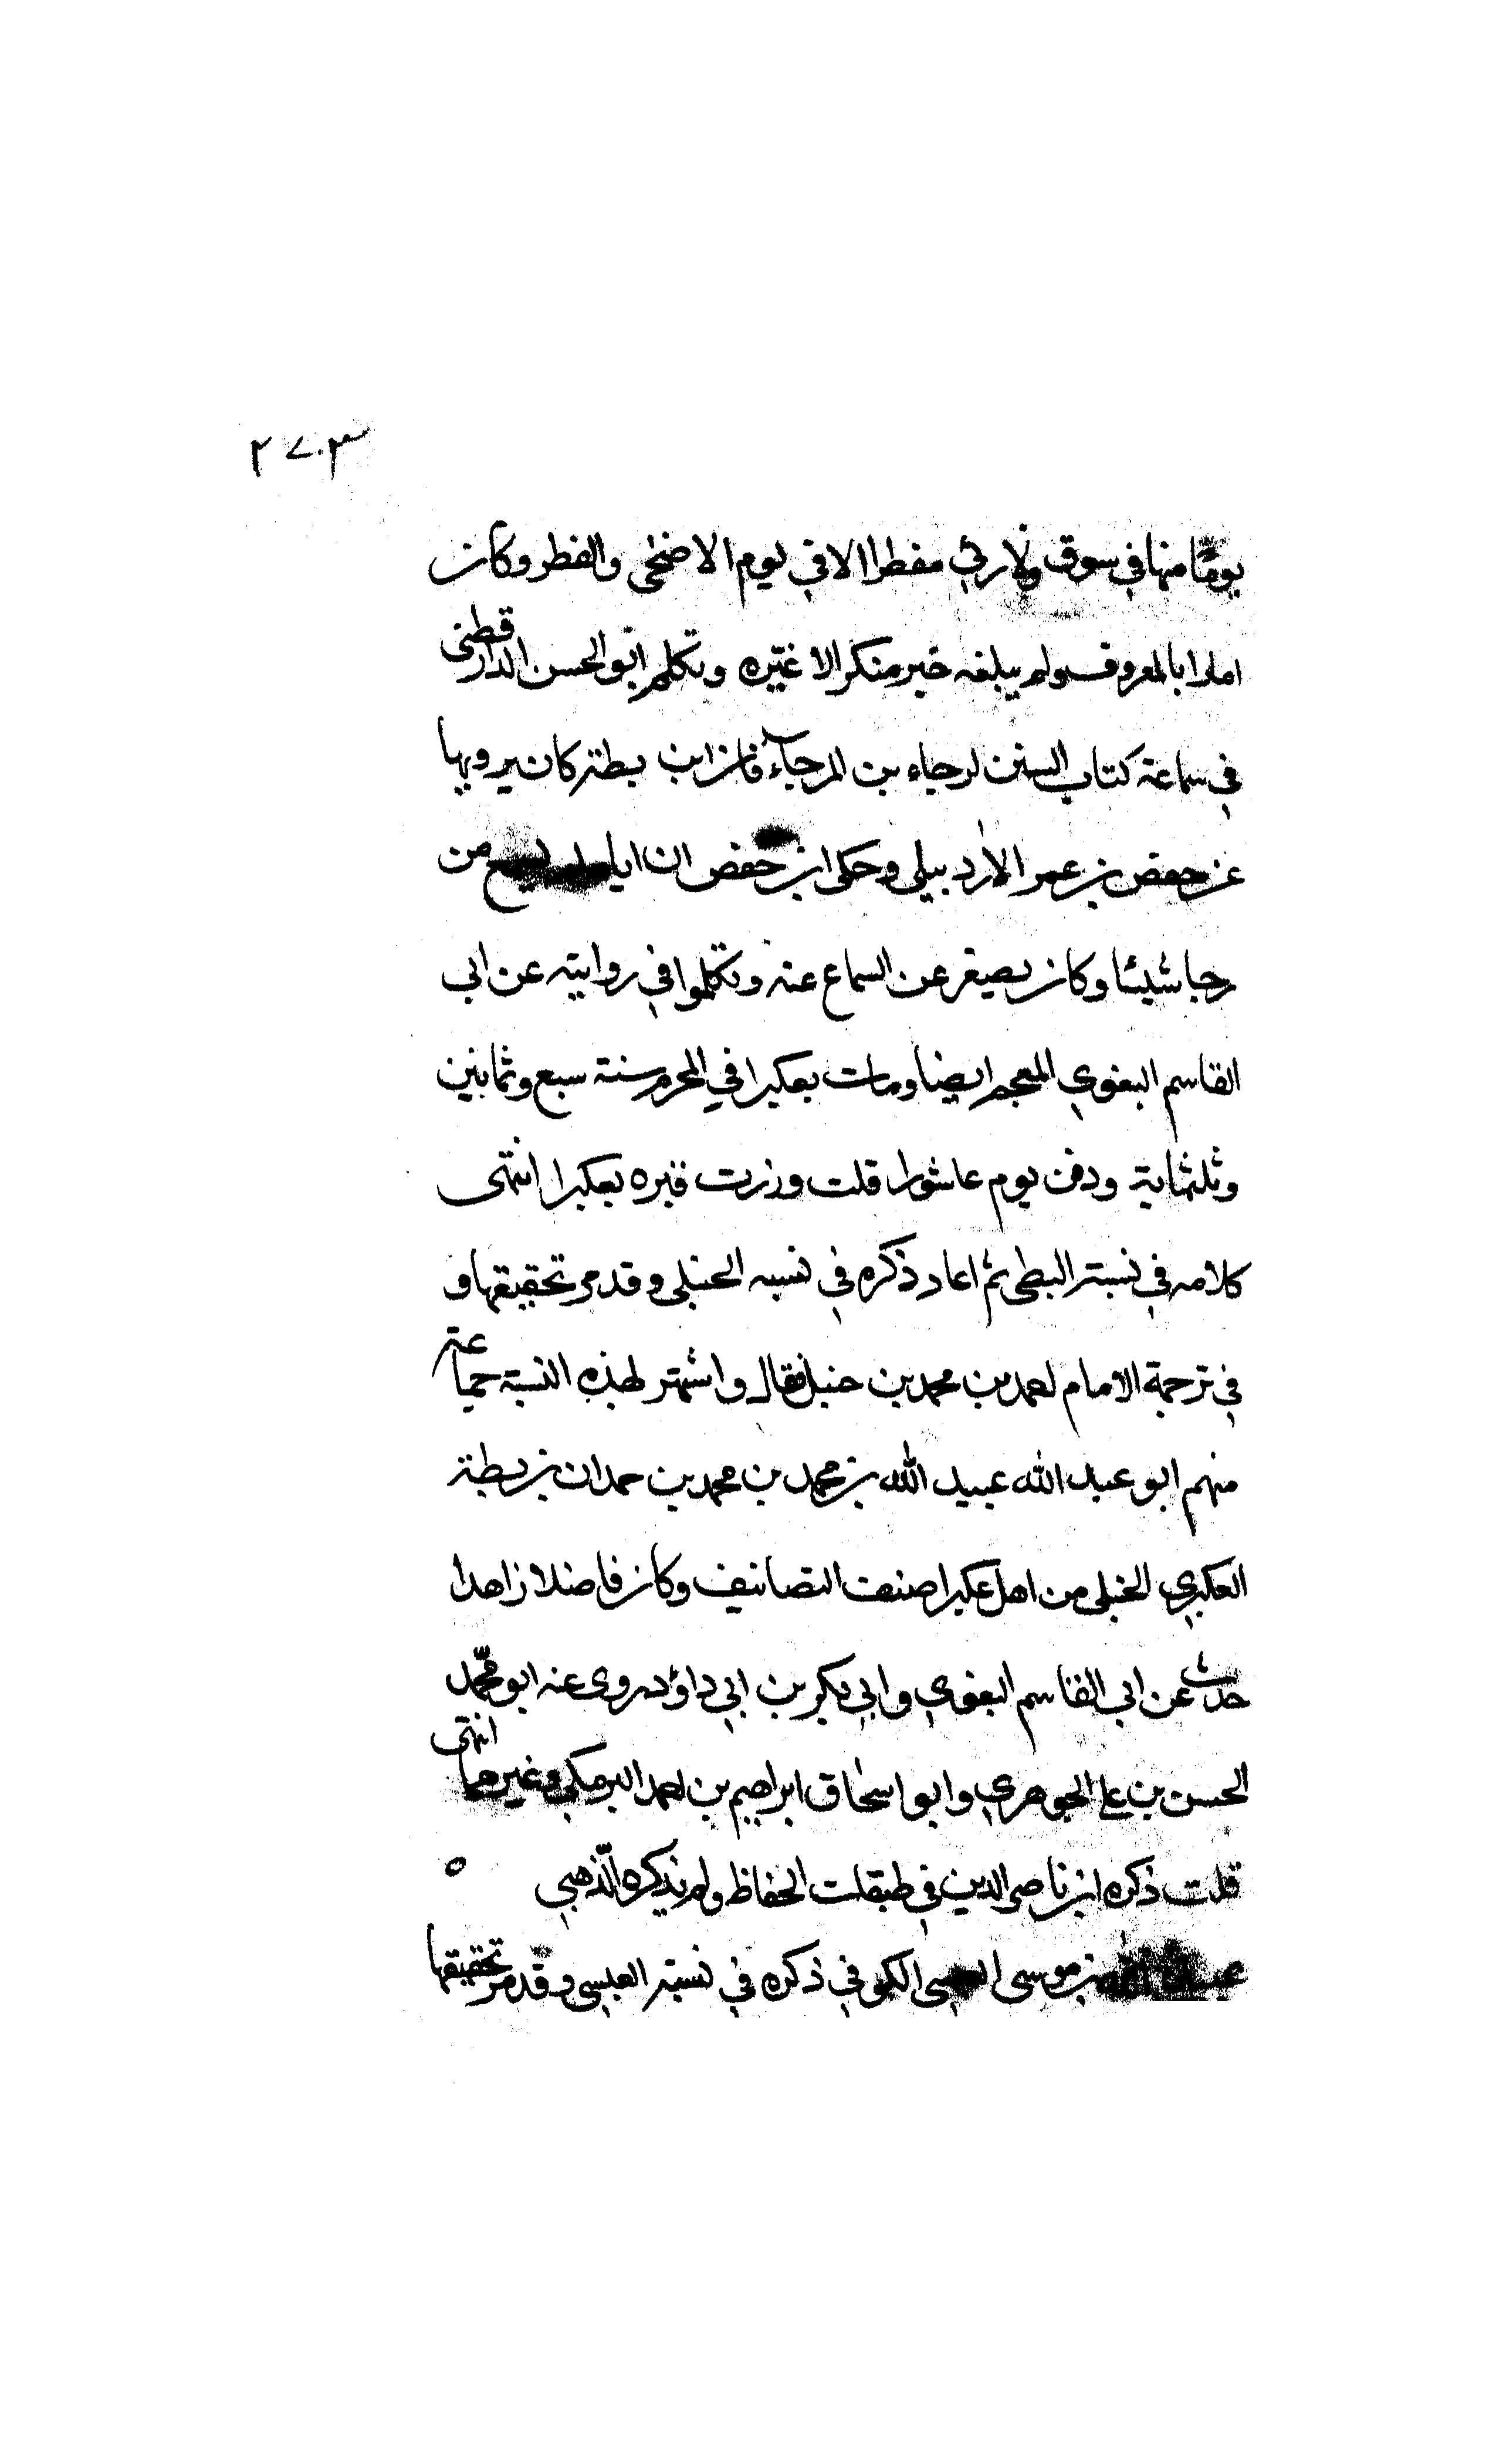 ٢٧٠٣
يومًا منها في سوق ولا رئي مفطرا الا في يوم الاضحى والفطر وكان
امارا بالمعروف ولم يبلغه خبر منكر الا غيّره وتكلم ابو الحسن الدارقطني
في سماعه كتاب السنن لرجاء بن المرجاء فان ابن بطة كان يرويها
عن حفص بن عمر الاردبيلي وحكى ابن حفص ان اباه لم يسمع من
رجا شيئا وكان يصغر عن السماع عنه وتكلموا في روايته عن ابي
القاسم البغوي المعجم ايضا ومات بعكبرا في المحرم سنة سبع وثمانين
وثلثماية ودفن يوم عاشورا قلت وزرت قبره بعكبرا انتهى
كلامه في نسبة البطي ثم اعاد ذكره في نسبه الحنبلي وقد مر تحقيقها و
في ترجمة الامام احمد بن محمد بن حنبل فقال واشتهر بهذه النسبة جماعة
منهم ابو عبد الله عبيد الله بن محمد بن محمد بن حمدان بن بطة
العكبري الحنبلي من اهل عكبرا صنف التصانيف وكان فاضلا زاهدا
حدث عن ابي القاسم البغوي وابي بكر بن ابي داؤد روى عنه ابو محمّد
الحسن بن علي الجوهري وابو اسحاق ابراهيم بن احمد البرمكي وغيرهما انتهى
قلت ذكره ابن ناصر الدين في طبقات الحفاظ ولم يذكره الذهبي ٥
بن موسى الكوفي ذكره في نسبة العبسي وقد مر تحقيقها